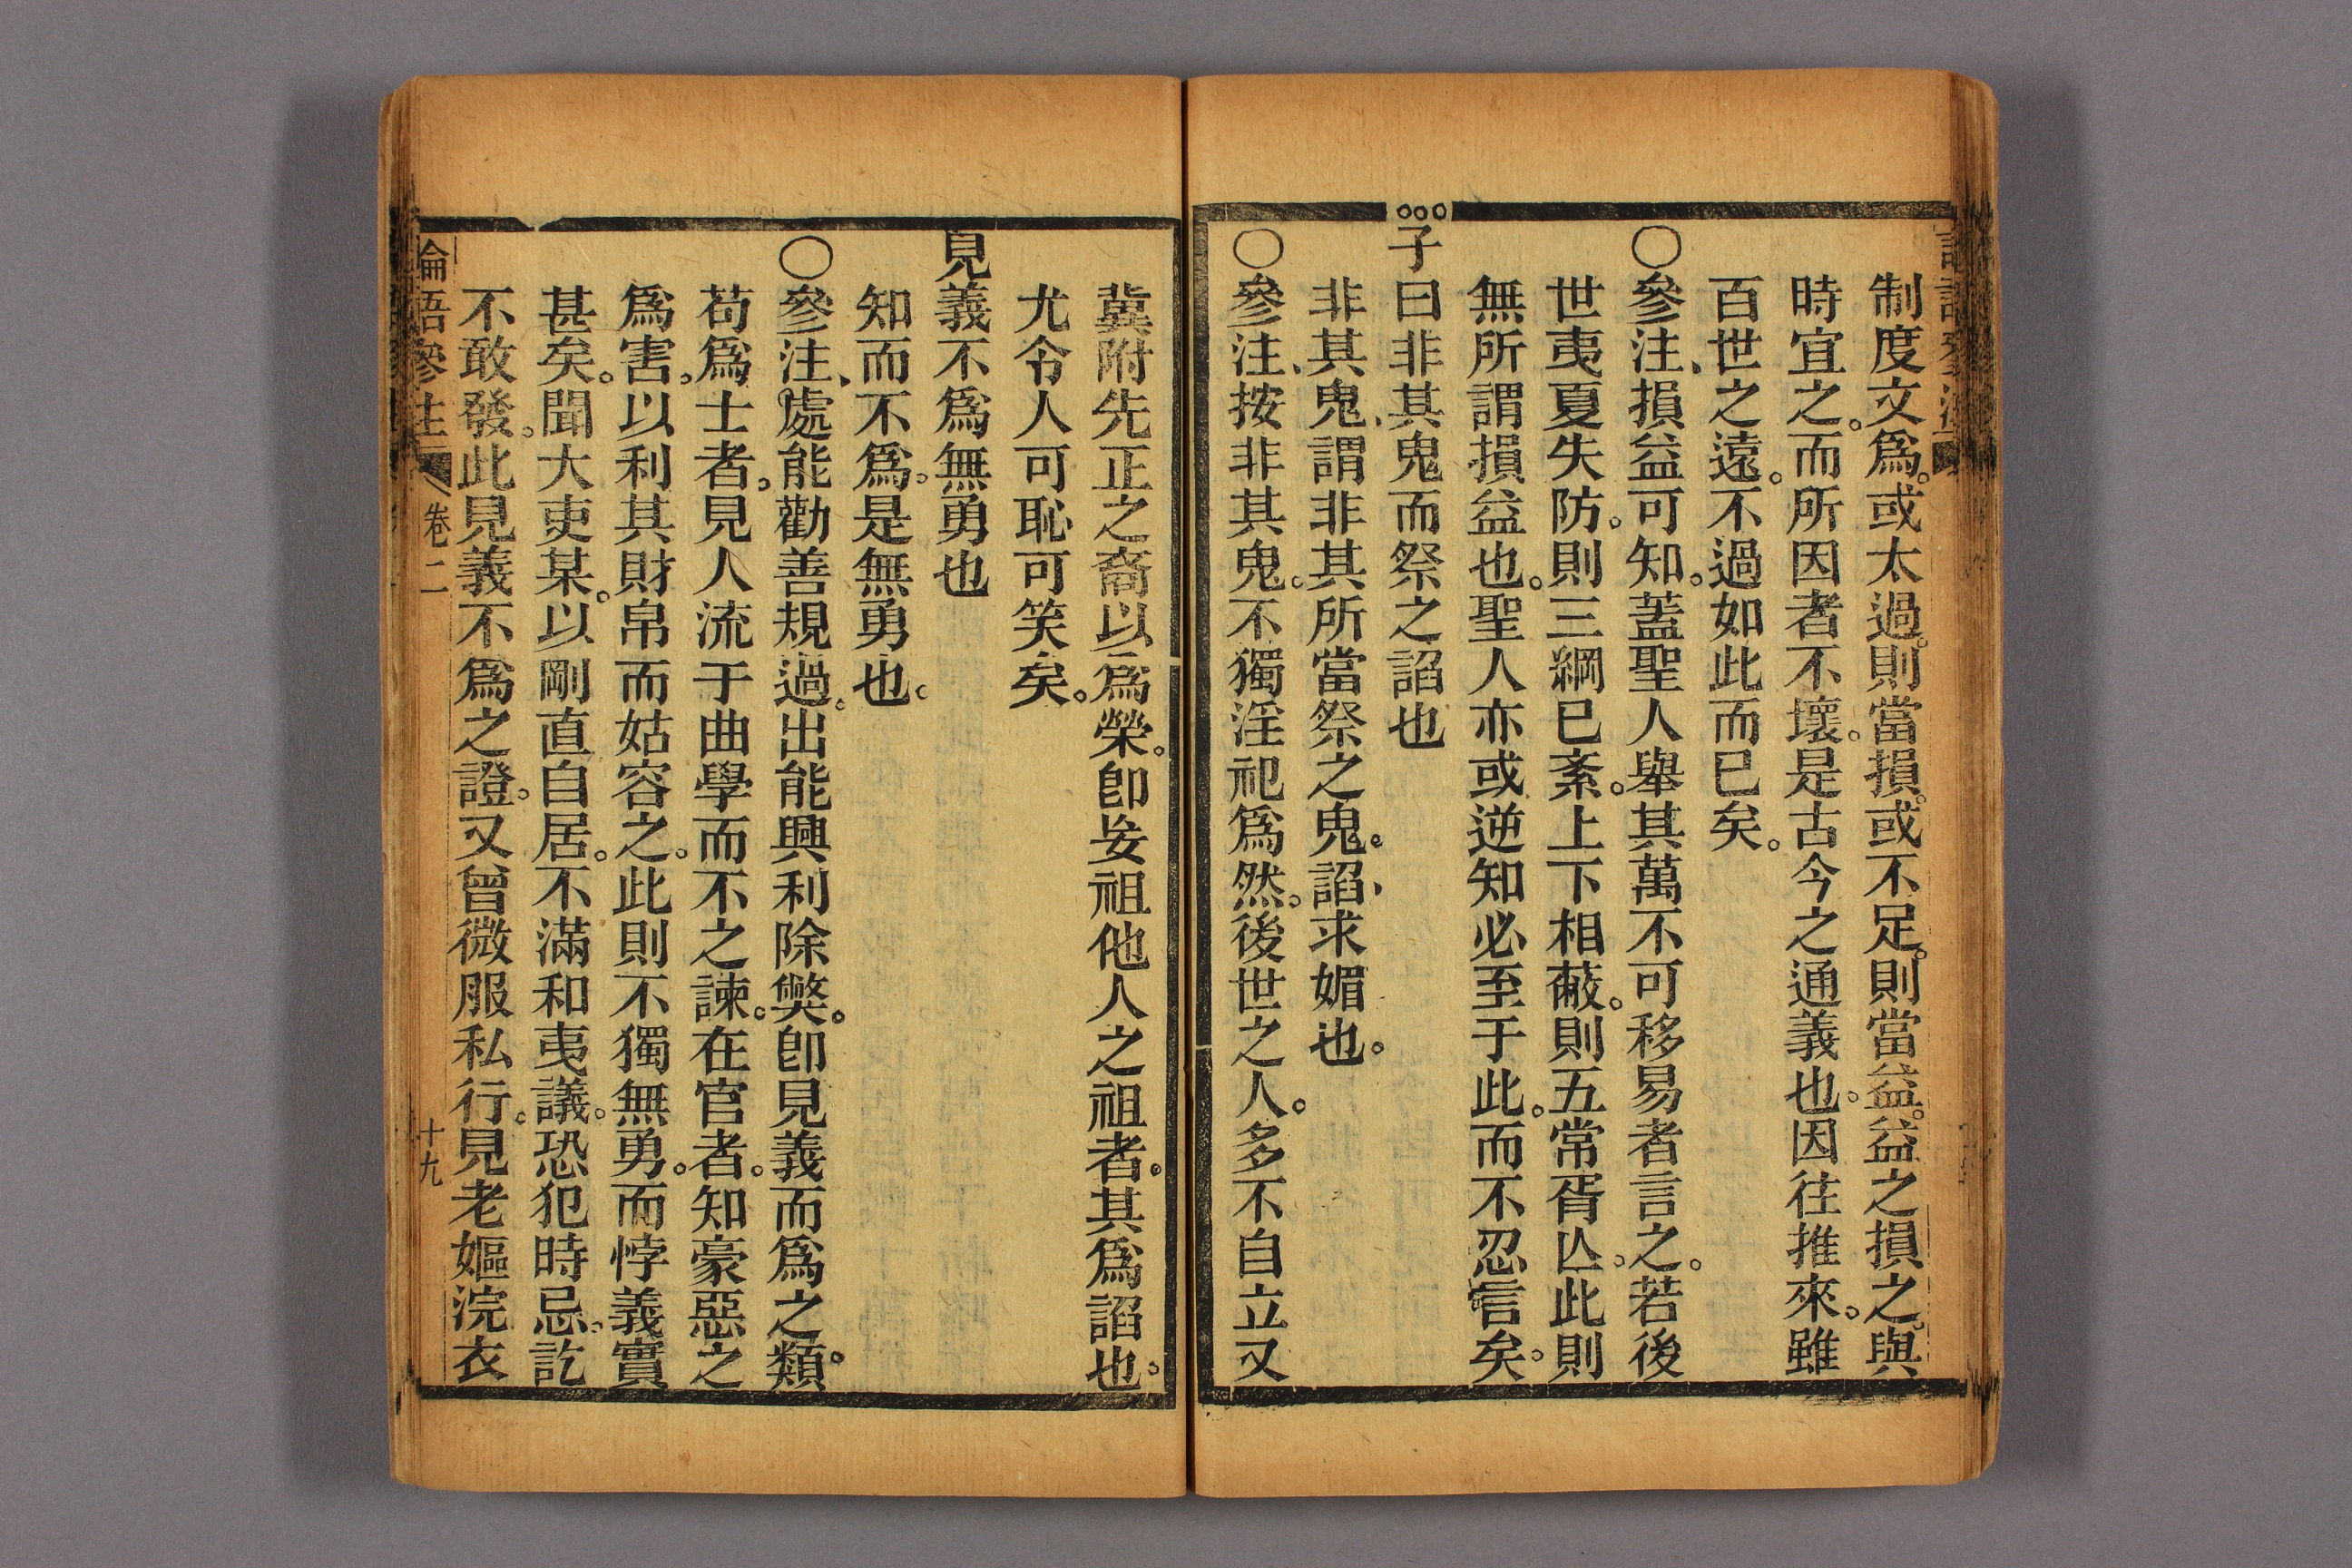 制度文爲。或太過。則當損。或不足。則當益。益之損之。與
時宜之。而所因者不壞。是古今之通義也。因往推來。雖
百世之遠。不過如此而已矣。
〇參注、損益可知。蓋聖人舉其萬不可移易者言之。若後
世夷夏失防。則三綱已紊。上下相蔽。則五常胥亾。此則
無所謂損益也。聖人亦或逆知必至于此。而不忍言矣。
子曰非其鬼而祭之諂也
非其鬼、謂非其所當祭之鬼。諂、求媚也。
〇參注、按非其鬼。不獨淫祀爲然。後世之人。多不自立又
冀附先正之裔以爲榮。卽妄祖他人之祖者。其爲諂也。
尤令人可恥可笑矣。
見義不爲無勇也
知而不爲。是無勇也。
〇參注、處能勸善規過。出能興利除獘。卽見義而爲之類。
苟爲士者。見人流于曲學而不之諫。在官者。知豪惡之
爲害。以利其財帛而姑容之。此則不獨無勇。而悖義實
甚矣。聞大吏某。以剛直自居。不滿和夷議。恐犯時忌。訖
不敢發。此見義不爲之證。又曾微服私行。見老嫗浣衣
論語參注 卷二 十九